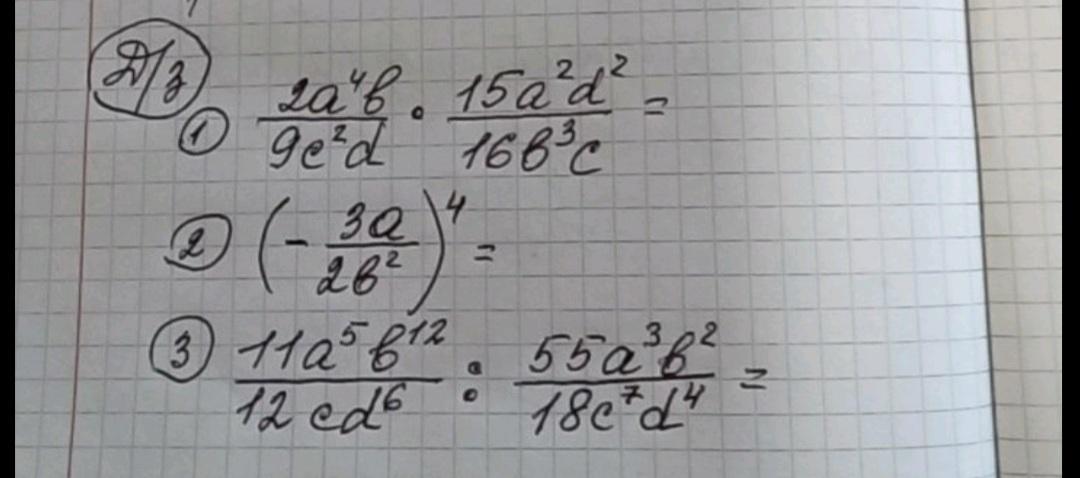 Д/з
① 2a⁴b/9c²d · 15a²d²/16b³c =
② (- 3a/2b²)⁴ =
③ 11a⁵b¹²/12cd⁶ : 55a³b²/18c⁷d⁴ =